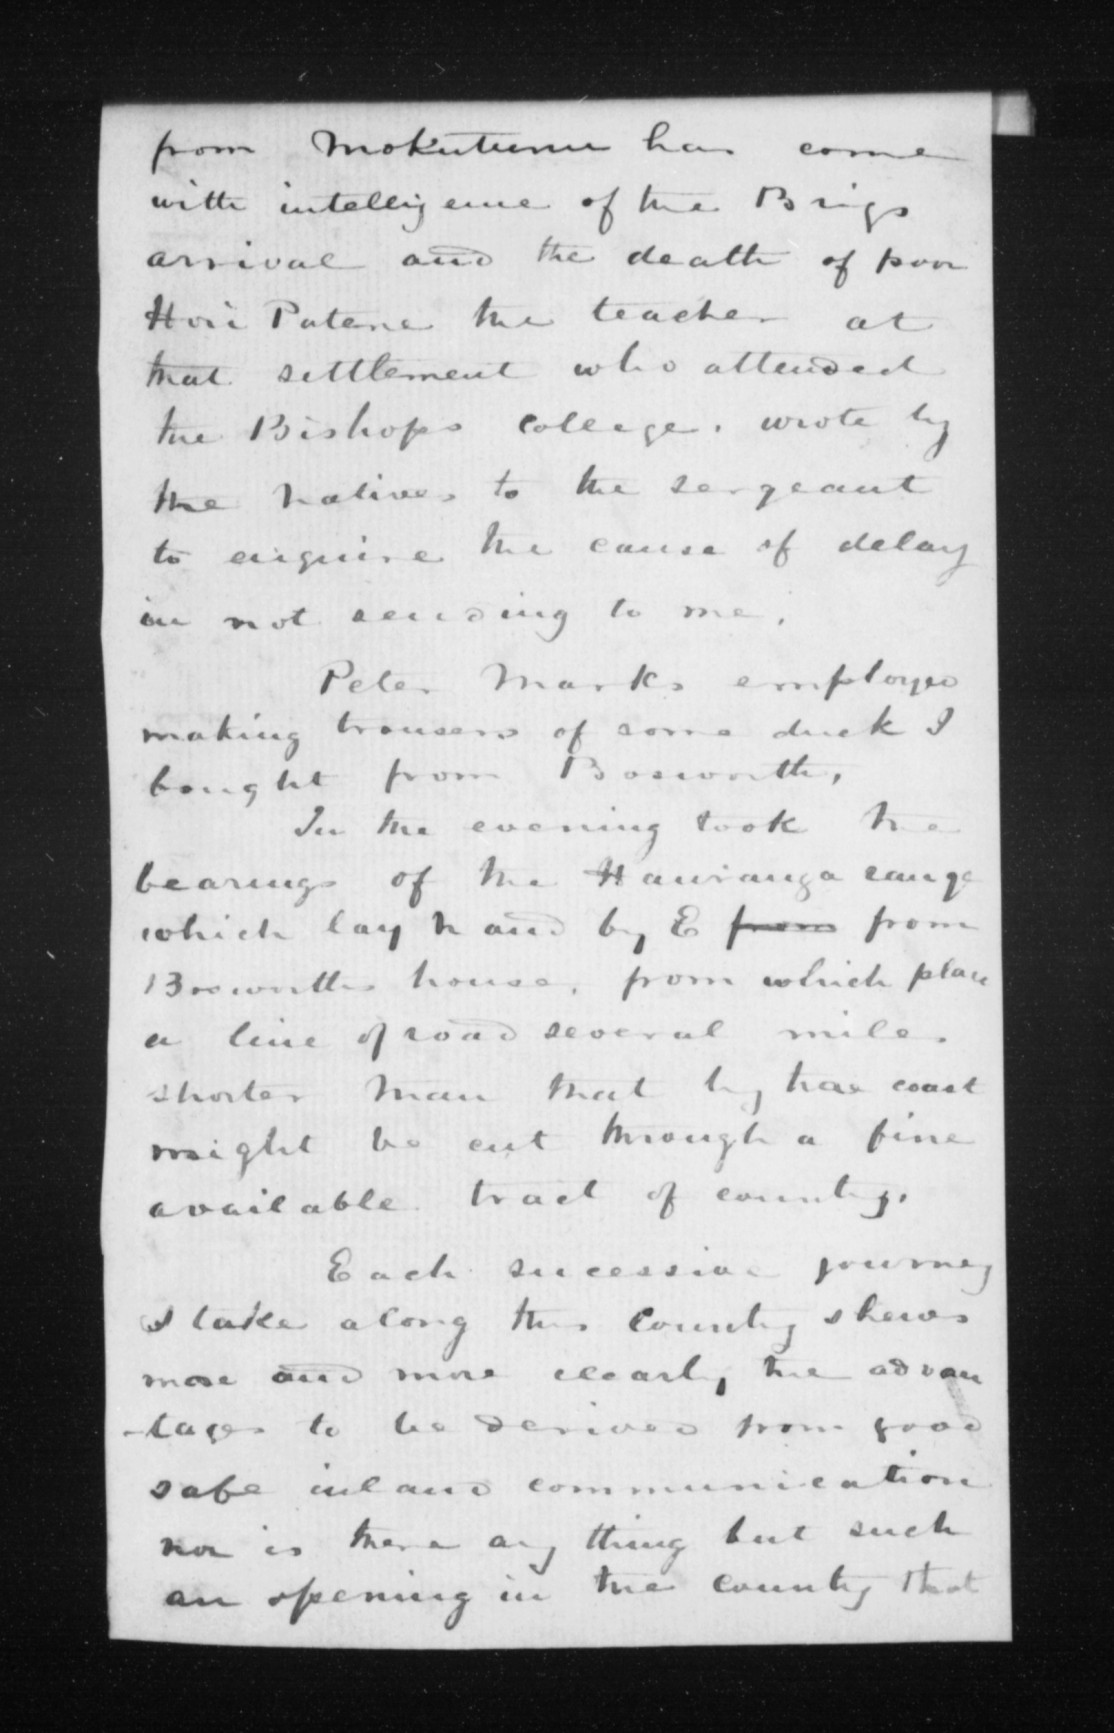 from Mokutunu has come
with intelligence of the Brigs
arrival and the death of poor
Hori Patene the teacher at
that settlement who attended
the Bishops College. wrote by
the Natives to the sergeant
to enquire the cause of delay
in not sending to me.
Peter Marks employed
making trousers of some duck I
bought from Bosworth,
In the evening took the
bearings of the Hauranga range
which lay N and by E from from
Bosworths house, from which place
a line of road several miles
shorter than that by the coast
might be cut through a fine
available tract of country.
Each sucessive journey
I take along this Country shews
more and more clearly the advan
-tages to be derived from good
safe inland communication
nor is there any thing but such
an opening in the country that